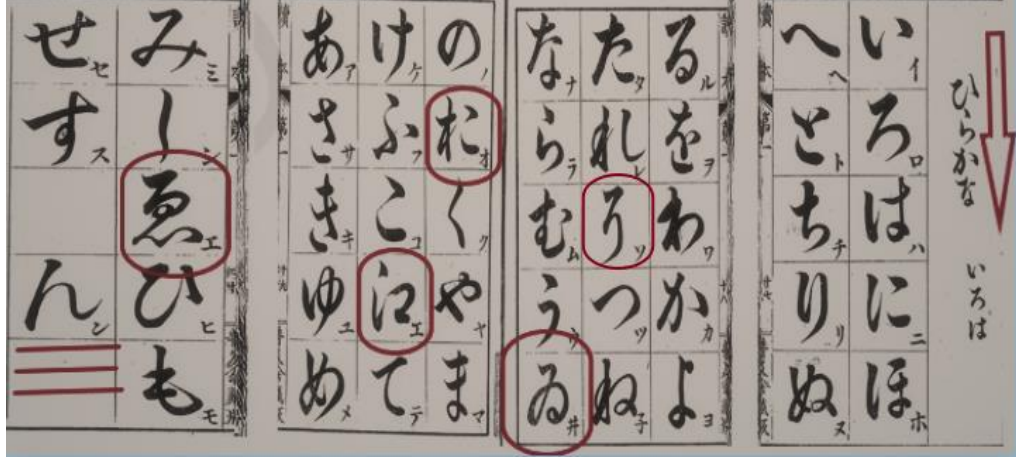 ひらかな いろは
いイ ろロ はハ にニ ほホ
へヘ とト ちチ りリ ぬヌ
るル をヲ わワ かカ よヨ
たタ れレ そソ つツ ね子
なナ らラ むム うウ ゐ井
のノ おオ くク やヤ まマ
けケ ふフ こコ 江エ てテ
あア さサ きキ ゆユ めメ
みミ しシ ゑエ ひヒ もモ
せセ すス んン